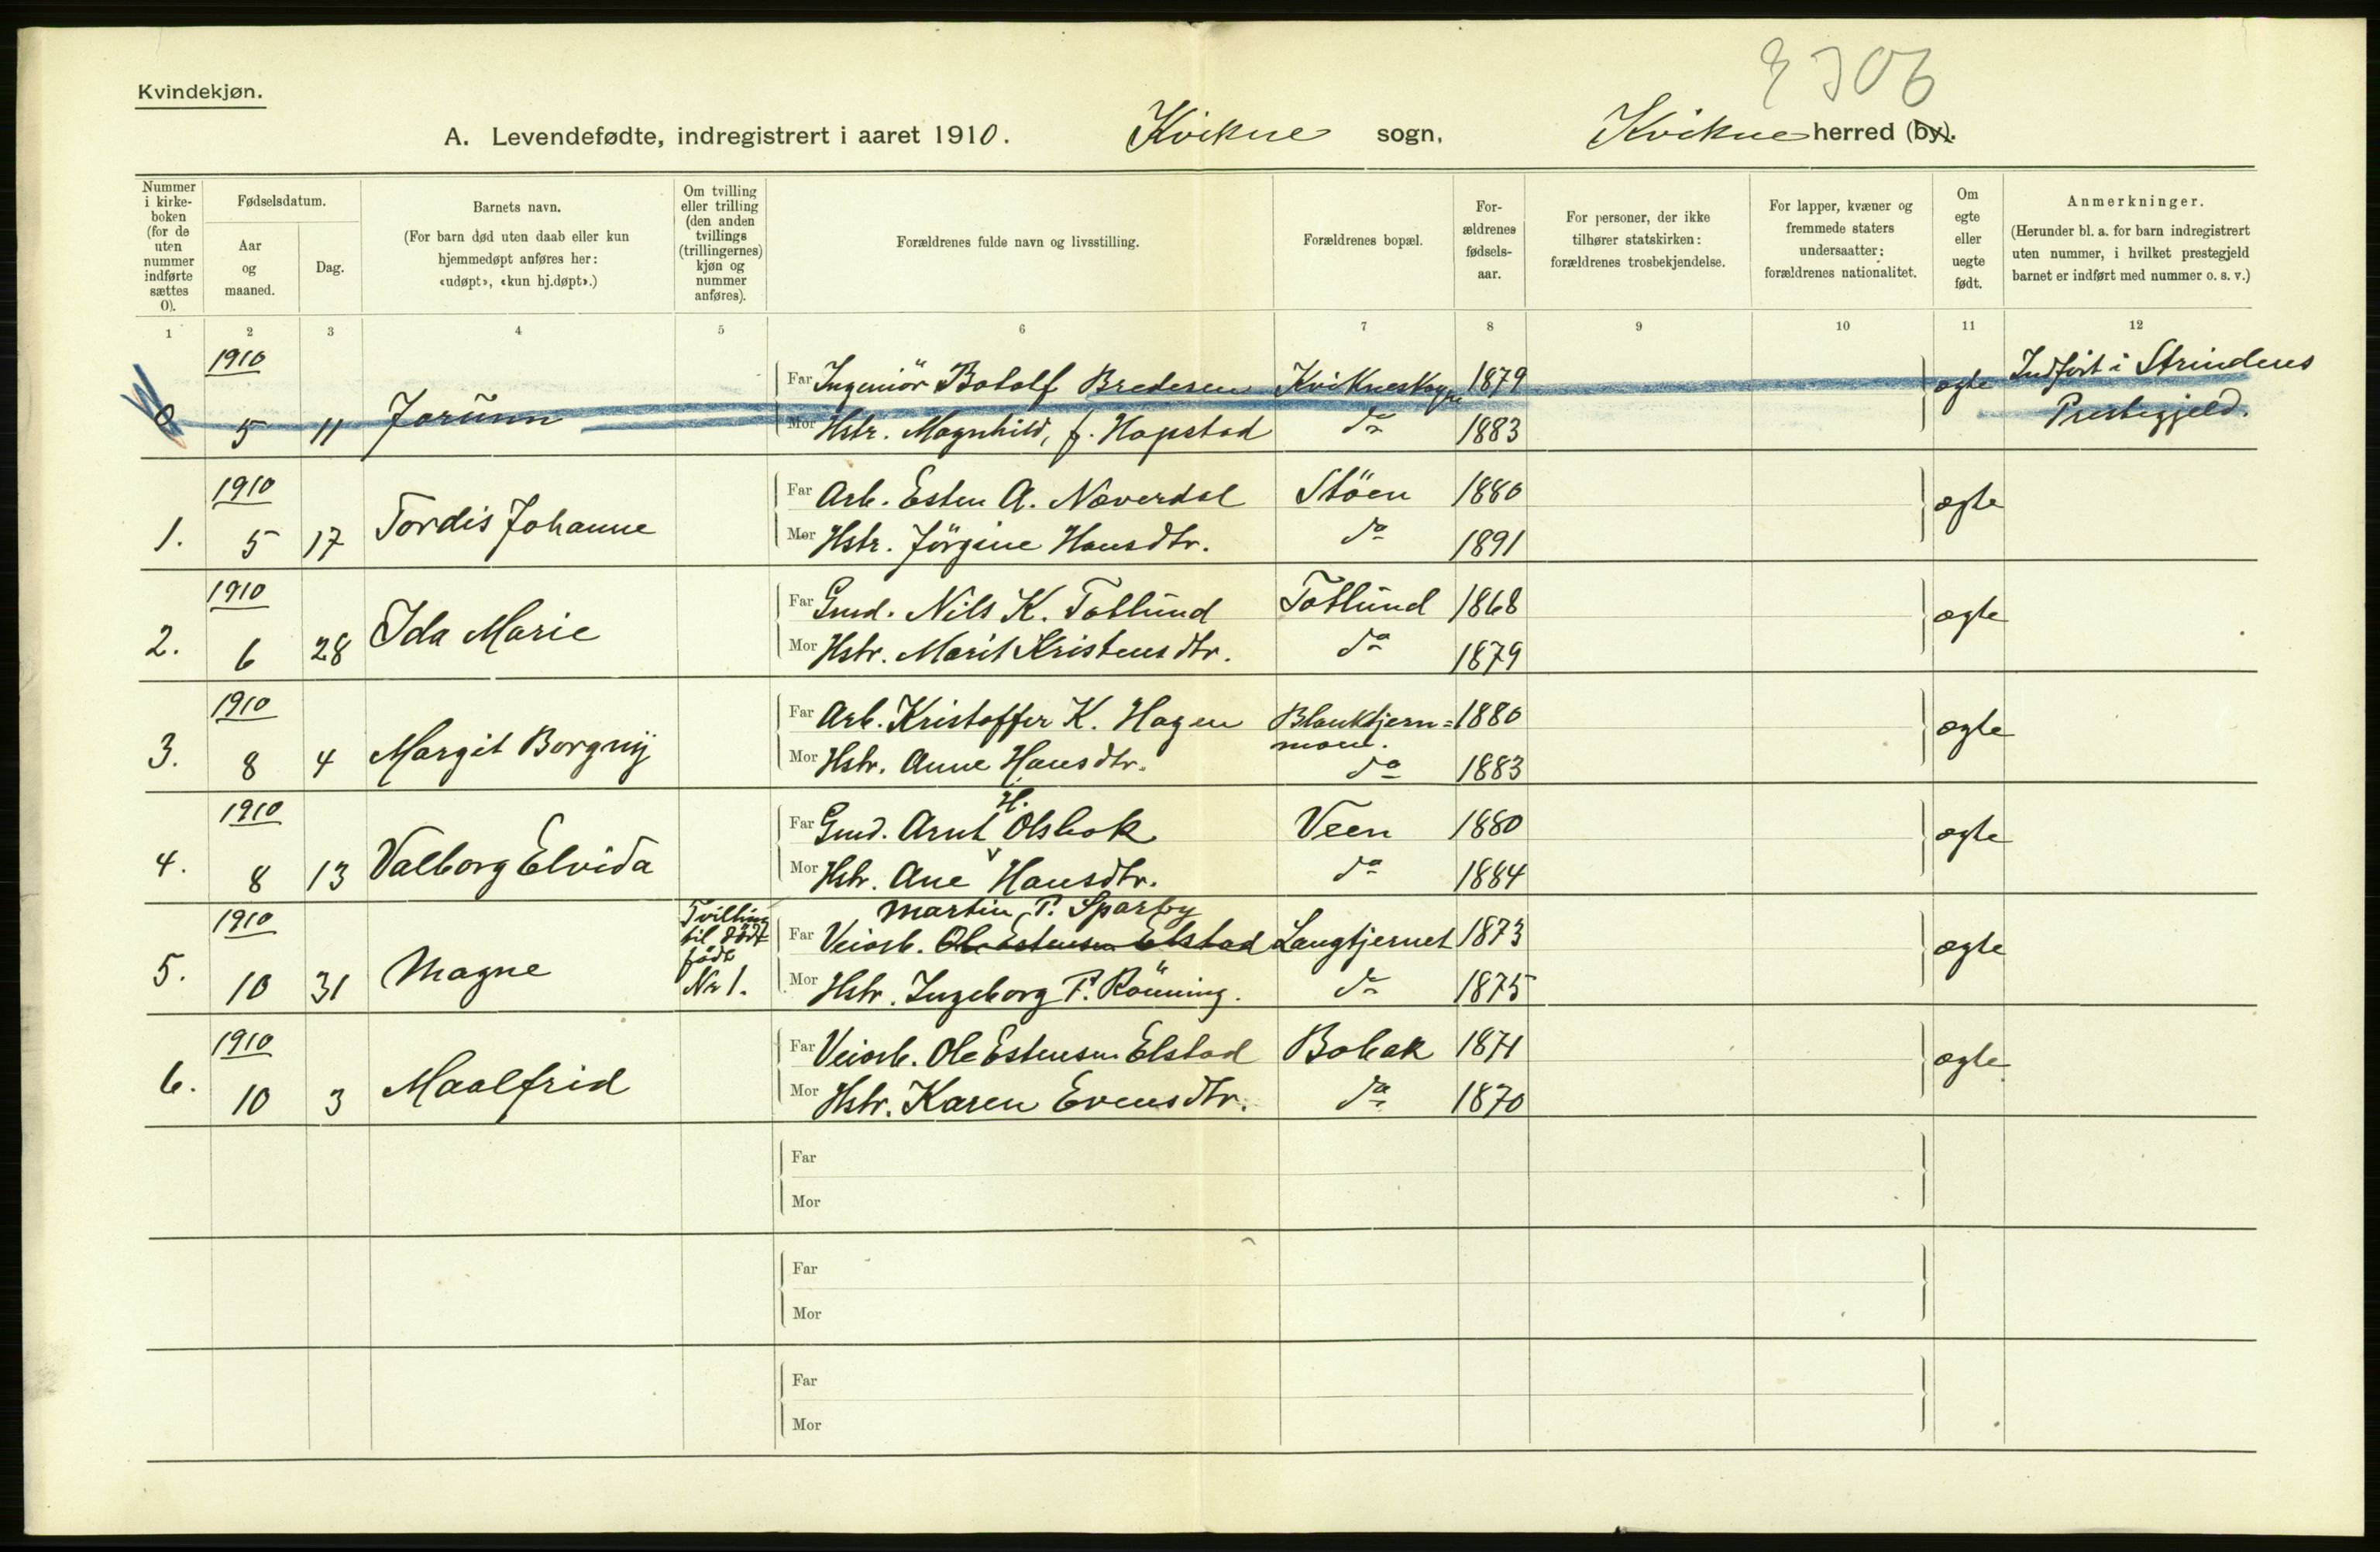 Kvindekjøn.
A. Levendefødte, indregistrert i aaret 1910. Kvikne sogn, Kvikne herred (by).
Nummer i kirke-boken (for de uten nummer indførte sættes 0).
Fødselsdatum.
Aar og maaned.
Dag.
Barnets navn.
(For barn død uten daab eller kun hjemmedøpt anføres her: «udøpt», «kun hj.døpt».)
Om tvilling eller trilling (den anden tvillings (trillingernes) kjøn og nummer anføres).
Forældrenes fulde navn og livsstilling.
Forældrenes bopæl.
For-ældrenes fødsels-aar.
For personer, der ikke tilhører statskirken: forældrenes trosbekjendelse.
For lapper, kvæner og fremmede staters undersaatter: forældrenes nationalitet.
Om egte eller uegte født.
Anmerkninger.
(Herunder bl. a. for barn indregistrert uten nummer, i hvilket prestegjeld barnet er indført med nummer o. s. v.)
1 2 3 4 5 6 7 8 9 10 11 12
1910
Far Ingeniör Botolf Bredesen Kvikneskogen 1879 ægte Indført i Strindens
0 5 11 Jorunn Mor Hstr. Magnhild, f. Hopstad do 1883 Prestegjeld.
1910 Far Arb. Esten A. Næverdal Stöen 1880 ægte
1. 5 17 Tordis Johanne Mor Hstr. Jörgine Hansdtr. do 1891
1910 Far Gmd. Nils K. Totlund Totlund 1868 ægte
2. 6 28 Ida Marie Mor Hstr. Marit Kristensdtr. do 1879
1910 Far Arb. Kristoffer K. Hagen Blanktjern= 1880 ægte
moen.
3. 8 4 Margit Borgny Mor Hstr. Anne Hansdtr. do 1883
1910 Far Gmd. Arnt H. Olsbak Veen 1880 ægte
4. 8 13 Valborg Elvida Mor Hstr. Ane Hansdtr. do 1884
Martin P. Sparby
1910 Tvilling til død født Nr 1. Far Veiarb. Ole Estensen Elstad Langtjernet 1873 ægte
5. 10 31 Magne Mor Hstr. Ingeborg P. Rönning. do 1875
1910 Far Veiarb. Ole Estensen Elstad Bobak 1871 ægte
6. 10 3 Maalfrid Mor Hstr. Karen Evensdtr. do 1870
Far
Mor
Far
Mor
Far
Mor